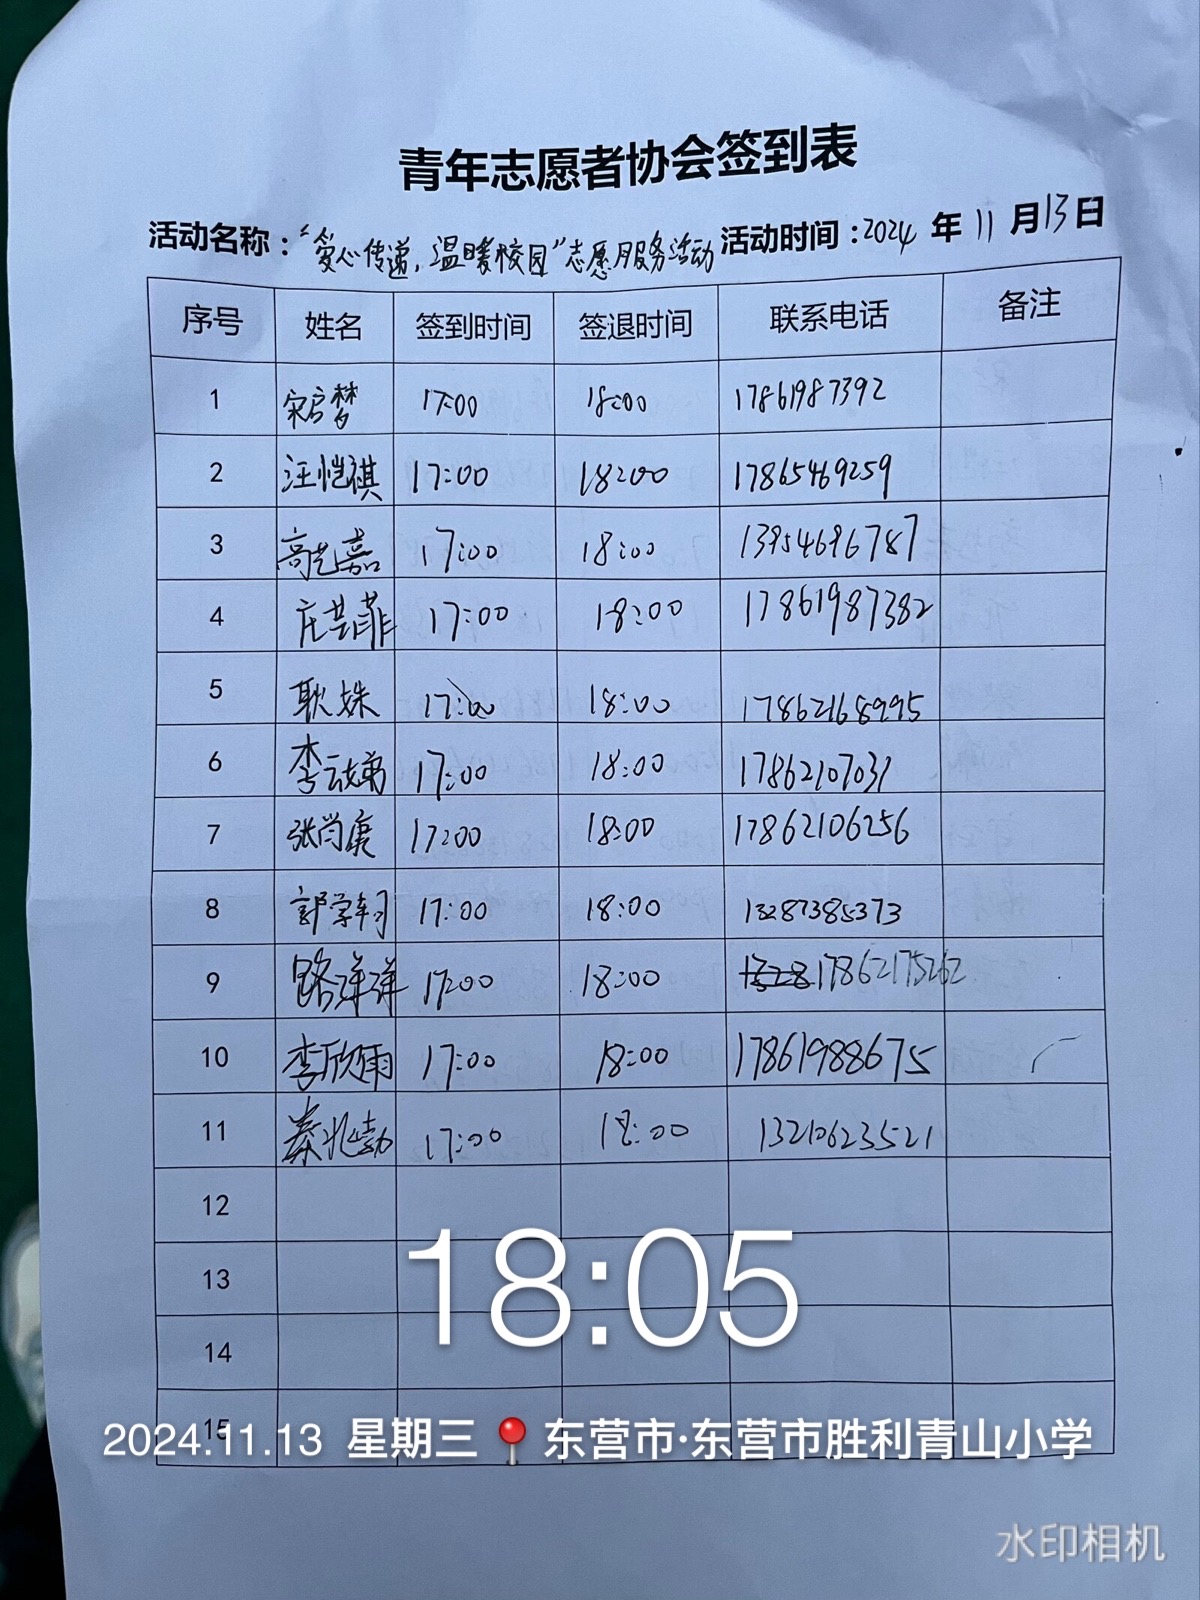 青年志愿者协会签到表
活动名称："爱心传递，温暖校园"志愿服务活动 活动时间：2024 年 11 月 13 日
序号 姓名 签到时间 签退时间 联系电话 备注
1 宋启梦 17:00 18:00 17861987392
2 汪恺祺 17:00 18:00 17865469259
3 高艺嘉 17:00 18:00 13954696787
4 庄芸菲 17:00 18:00 17861987382
5 耿姝 17:00 18:00 17862168995
6 李云娣 17:00 18:00 17862107031
7 张尚庚 17:00 18:00 17862106256
8 郭学轲 17:00 18:00 13287385373
9 路洋洋 17:00 18:00 17862175262
10 李欣雨 17:00 18:00 17861988675
11 秦兆勃 17:00 18:00 13210623521
12
13
18:05
14
15
2024.11.13 星期三 东营市·东营市胜利青山小学
水印相机